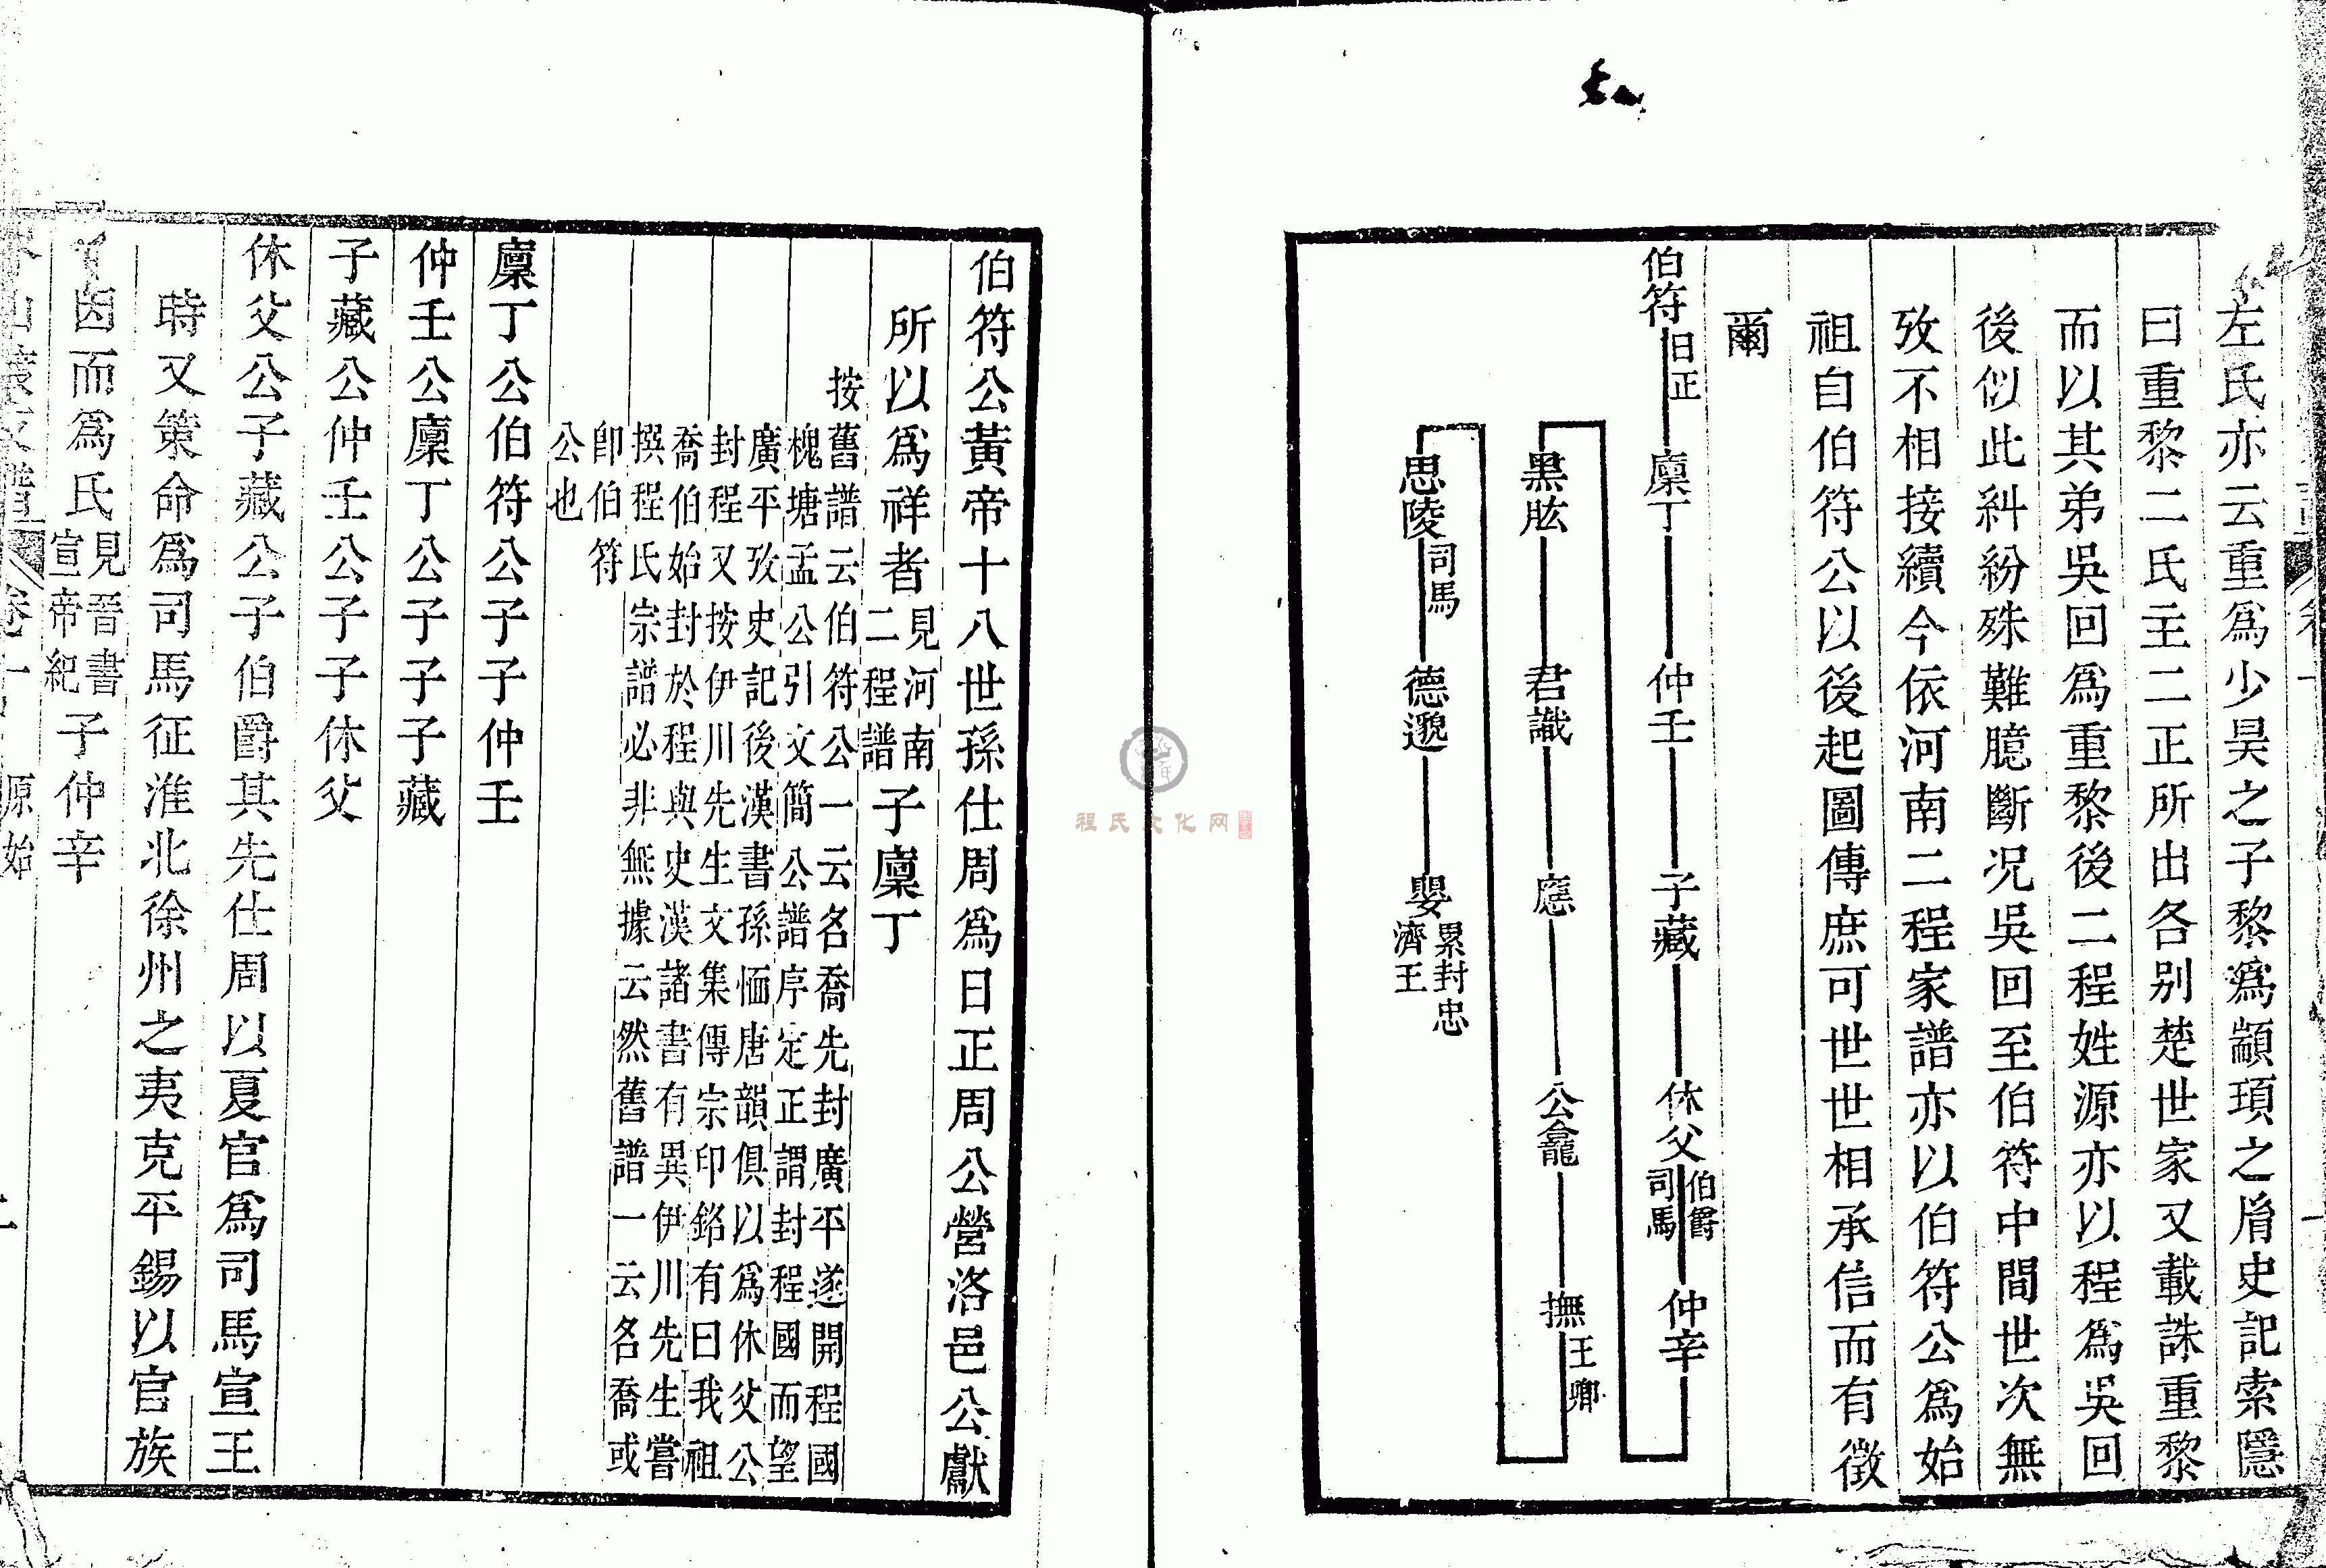 左氏亦云重爲少昊之子黎爲顓頊之胤史記索隱
曰重黎二氏主二正所出各别楚世家又載誅重黎
而以其弟吳回爲重黎後二程姓源亦以程爲吳回
後似此糾紛殊難臆斷况吳回至伯符中間世次無
攷不相接續今依河南二程家譜亦以伯符公爲始
祖自伯符公以後起圖傳庶可世世相承信而有徵
爾
伯符 日正 廩丁 仲壬 子藏 休父 伯爵司馬 仲辛
黑肱 君識 應 公龕 撫 王卿
思陵 司馬 德邈 嬰 累封忠濟王
伯符公黃帝十八世孫仕周爲日正周公營洛邑公獻
所以爲祥者 見河南二程譜 子廩丁
按舊譜云伯符公一云名喬先封廣平遂開程國
槐塘孟公引文簡公譜序定正謂封程國而望
廣平攷史記後漢書孫愐唐韻俱以爲休父公
封程又按伊川先生文集傳宗印銘有曰我祖
喬伯始封於程與史漢諸書有異伊川先生嘗
撰程氏宗譜必非無據云然舊譜一云名喬或
卽伯符
公也
廩丁公伯符公子子仲壬
仲壬公廩丁公子子子藏
子藏公仲壬公子子休父
休父公子藏公子伯爵其先仕周以夏官爲司馬宣王
時又策命爲司馬征淮北徐州之夷克平錫以官族
因而爲氏 見晉書宣帝紀 子仲辛
卷一
原始
程氏文化网